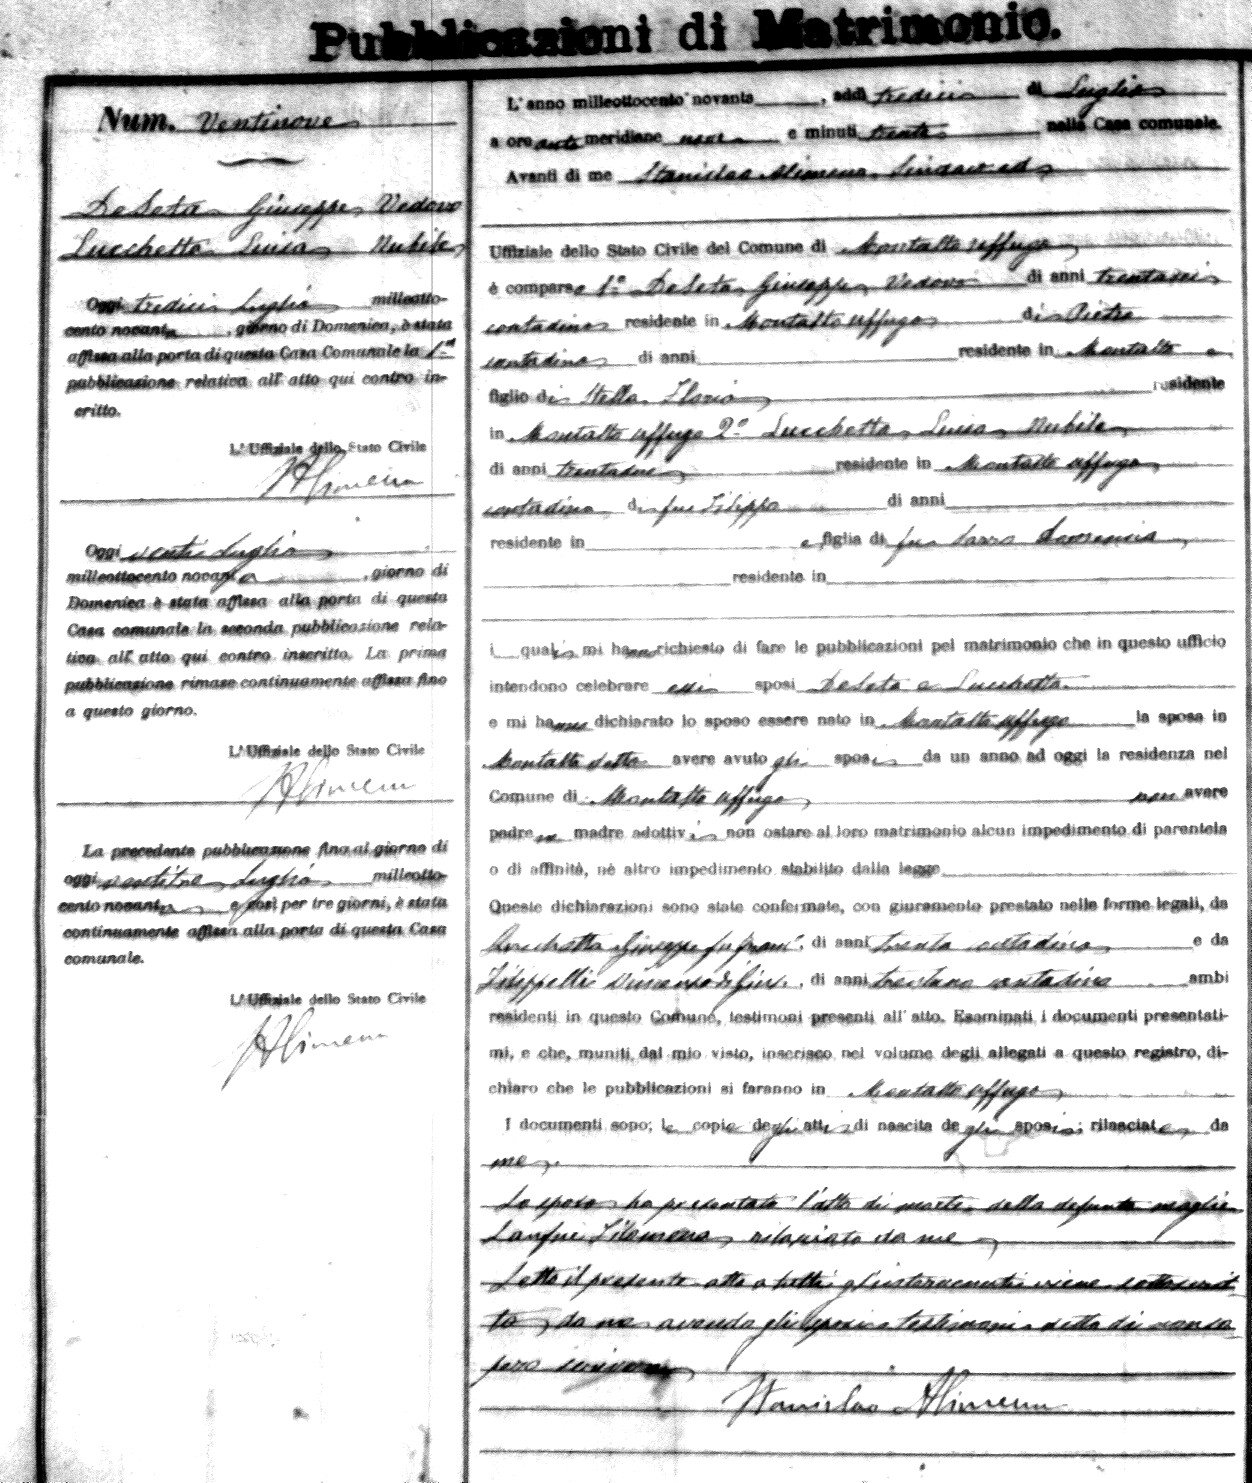 Pubblicazioni di Matrimonio.
Num. Ventinove
DeSeta Giuseppe Vedovo
Lucchetta Luisa Nubile
Oggi tredici Luglio milleotto-
cento novanta, giorno di Domenica, è stata
affissa alla porta di questa Casa Comunale la 1ª
pubblicazione relativa all' atto qui contro in-
critto.
L' Uffiziale dello Stato Civile
SAlimena
Oggi venti Luglio
milleottocento novanta, giorno di
Domenica è stata affissa alla porta di questa
Casa comunale la seconda pubblicazione rela-
tiva all' atto qui contro inscritto. La prima
pubblicazione rimase continuamente affissa fino
a questo giorno.
L' Uffiziale dello Stato Civile
SAlimena
La precedente pubblicazione fino al giorno di
oggi ventitre Luglio milleotto-
cento novanta e così per tre giorni, è stata
continuamente affissa alla porta di questa Casa
comunale.
L' Uffiziale dello Stato Civile
SAlimena
L' anno milleottocento novanta, addì tredici di Luglio
a ore ante meridiane nove e minuti trenta nella Casa comunale.
Avanti di me Stanislao Alimena Sindaco ed
Uffiziale dello Stato Civile del Comune di Montalto uffugo
è comparso 1º DeSeta Giuseppe Vedovo di anni trentasei
contadino residente in Montalto uffugo di Pietro
contadino di anni residente in Montalto e
figlio di Stella Ilaria residente
in Montalto uffugo 2º Lucchetta Luisa Nubile
di anni trentadue residente in Montalto uffugo
contadina di fu Filippo di anni
residente in e figlia di fu Sarro
residente in
i quali mi hanno richiesto di fare le pubblicazioni pel matrimonio che in questo ufficio
intendono celebrare essi sposi DeSeta e Lucchetta
e mi hanno dichiarato lo sposo essere nato in Montalto uffugo la sposa in
Montalto detto avere avuto gli sposi da un anno ad oggi la residenza nel
Comune di Montalto uffugo non avere
padre o madre adottivi non ostare al loro matrimonio alcun impedimento di parentela
o di affinità, nè altro impedimento stabilito dalla legge
Queste dichiarazioni sono state confermate, con giuramento prestato nelle forme legali, da
Lucchetta Giuseppe fu, di anni trenta contadino e da
Filippelli Vincenzo di Gius., di anni trentuno contadino ambi
residenti in questo Comune, testimoni presenti all' atto. Esaminati i documenti presentati-
mi, e che, muniti dal mio visto, inserisco nel volume degli allegati a questo registro, di-
chiaro che le pubblicazioni si faranno in Montalto uffugo
I documenti sono; le copie degli atti di nascita degli sposi; rilasciate da
me.
Lo sposo ha presentato l'atto di morte della defunta moglie
Filomena rilasciato da me
Letto il presente atto a tutti gl'intervenuti viene sottoscrit-
to da me avendo gli sposi e testimoni detto di non sa-
pere scrivere
Stanislao Alimena